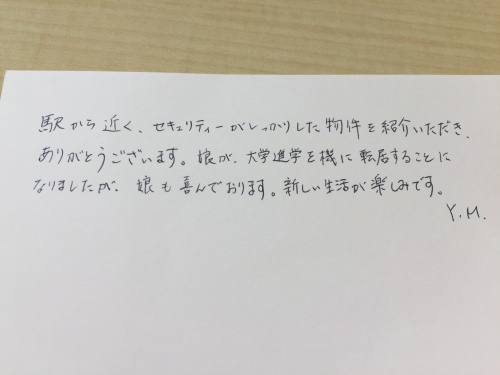 駅から近く、セキュリティーがしっかりした物件を紹介いただき、
ありがとうございます。娘が、大学進学を機に転居することに
なりましたが、娘も喜んでおります。新しい生活が楽しみです。
Y.M.